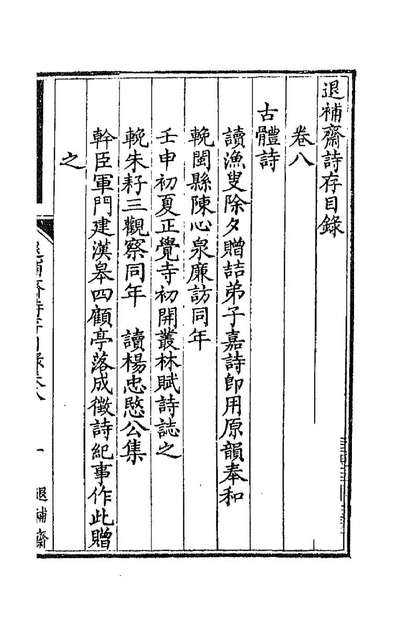 退補齋詩存目錄
卷八
古體詩
讀漁叟除夕贈喆弟子嘉詩即用原韻奉和
輓閩縣陳心泉廉訪同年
壬申初夏正覺寺初開叢林賦詩誌之
輓朱籽三觀察同年　讀楊忠愍公集
幹臣軍門建漢皋四顧亭落成徵詩紀事作此贈
之
退補齋詩存目錄卷八
一
退補齋